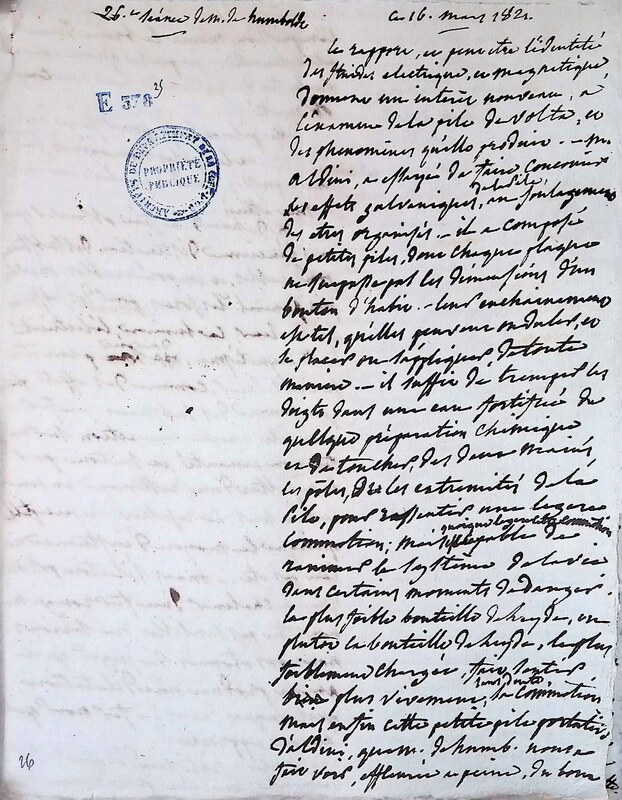 26.e séance de m. de humboldt ce 16. mars 182.
le rapport, et peut etre l'identité
des fluides electrique, et magnetique
donnent un interet nouveau, a
l'examen de la pile de volta, et
des phenomenes qu'elle produit. — m.
aldini, a essayé de faire concourir
les effets galvaniques, de la pile, au soulagement
des etres organisés. — il a composé
de petites piles, dont chaque plaque
ne surpasse pas les dimensions d'un
bouton d'habit. — leur enchainement
est tel, qu'elles peuvent onduler, et
se placer ou s'appliquer de toute
maniere. — il suffit de tremper les
doigts dans une eau fortifiée de
quelque préparation chimique
et de toucher, des deux mains
les pôles, les extremités de la
pile, pour ressentir une legere
commotion; mais quoique legere cette commotion capable de
ranimer le systême de la vie
dans certains moments de danger.
la plus foible bouteille de leyde, ou
plutot la bouteille de leyde, la plus
foiblement chargée, fait sentir
bien plus vivement, sans doute, la commotion
mais enfin cette petite pile portative
d'aldini, que m. de humb. nous a
fait voir, effleurée a peine, du bout
E 378
25
ARCHIVES DU DEPARTEMENT DE LA
PROPRIÉTÉ
PUBLIQUE
26